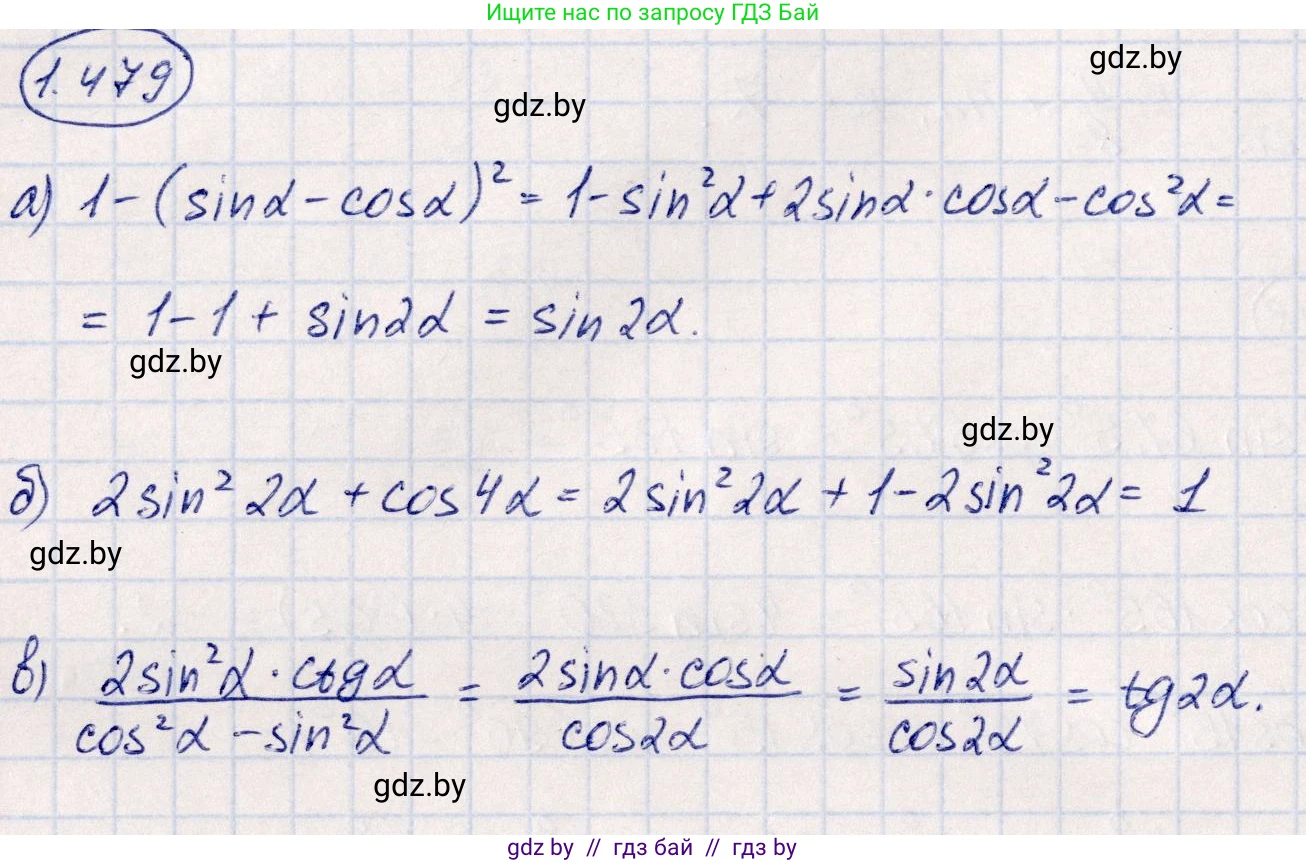 Ищите нас по запросу ГДЗ Бай
1.479
gdz.by
gdz.by
а) 1-(sinα-cosα)² = 1-sin²α+2sinα·cosα-cos²α=
= 1-1+ sin2α = sin2α.
gdz.by
gdz.by
б) 2sin²2α+cos4α=2sin²2α+1-2sin²2α= 1
gdz.by
в) 2sin²α·ctgα/cos²α-sin²α = 2sinα·cosα/cos2α = sin2α/cos2α = tg2α.
gdz.by
gdz by // гдз бай // гдз by